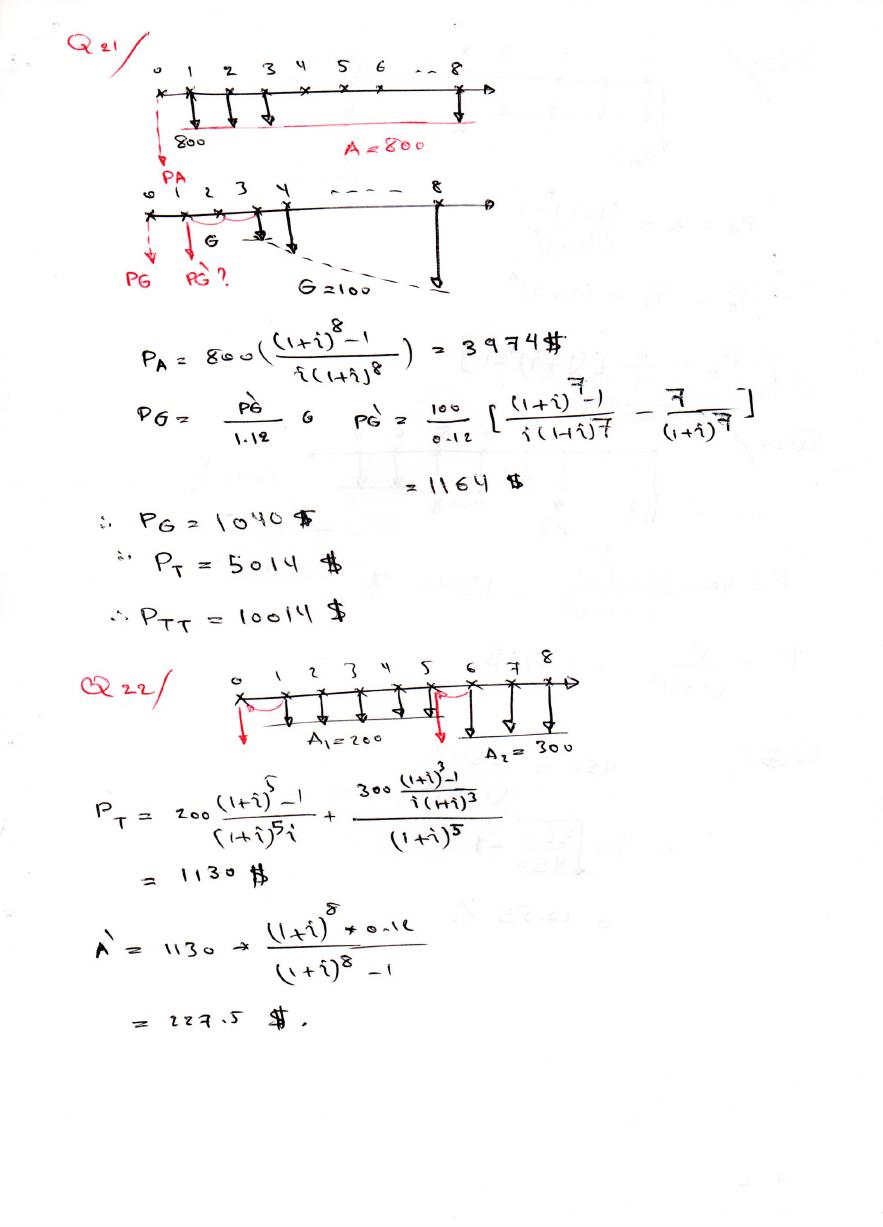 Q21/
0 1 2 3 4 5 6 .. 8
800
A = 800
PA
0 1 2 3 4 ---- 8
G
PG PG` ?
G = 100
P_A = 800 ( ((1+i)^8 - 1) / (i(1+i)^8) ) = 3974 $
PG = PG` / 1.12 , PG` = 100 / 0.12 [ ((1+i)^7 - 1) / (i(1+i)^7) - 7 / (1+i)^7 ]
= 1164 $
∴ P_G = 1040 $
∴ P_T = 5014 $
∴ P_TT = 10014 $
Q22/
0 1 2 3 4 5 6 7 8
A_1 = 200
A_2 = 300
P_T = 200 ((1+i)^5 - 1) / ((1+i)^5 i) + (300 ((1+i)^3 - 1) / (i(1+i)^3)) / (1+i)^5
= 1130 $
A` = 1130 * ((1+i)^8 * 0.12) / ((1+i)^8 - 1)
= 227.5 $.